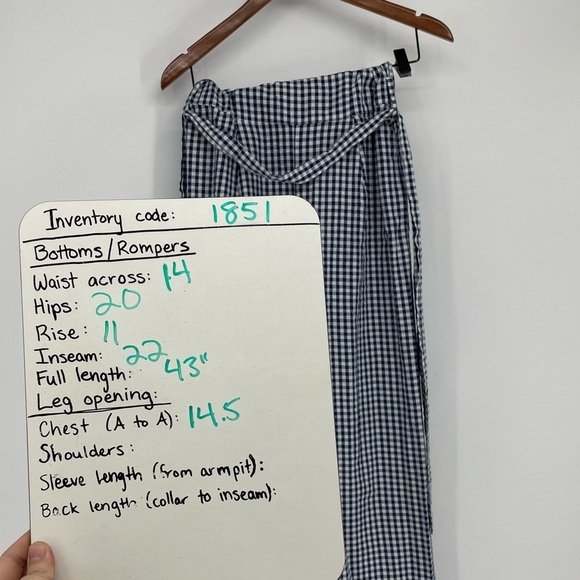 Inventory code: 1851
Bottoms/Rompers
Waist across: 14
Hips: 20
Rise: 11
Inseam: 22
Full length: 43"
Leg opening:
Chest (A to A): 14.5
Shoulders:
Sleeve length (from armpit):
Back length (collar to inseam):